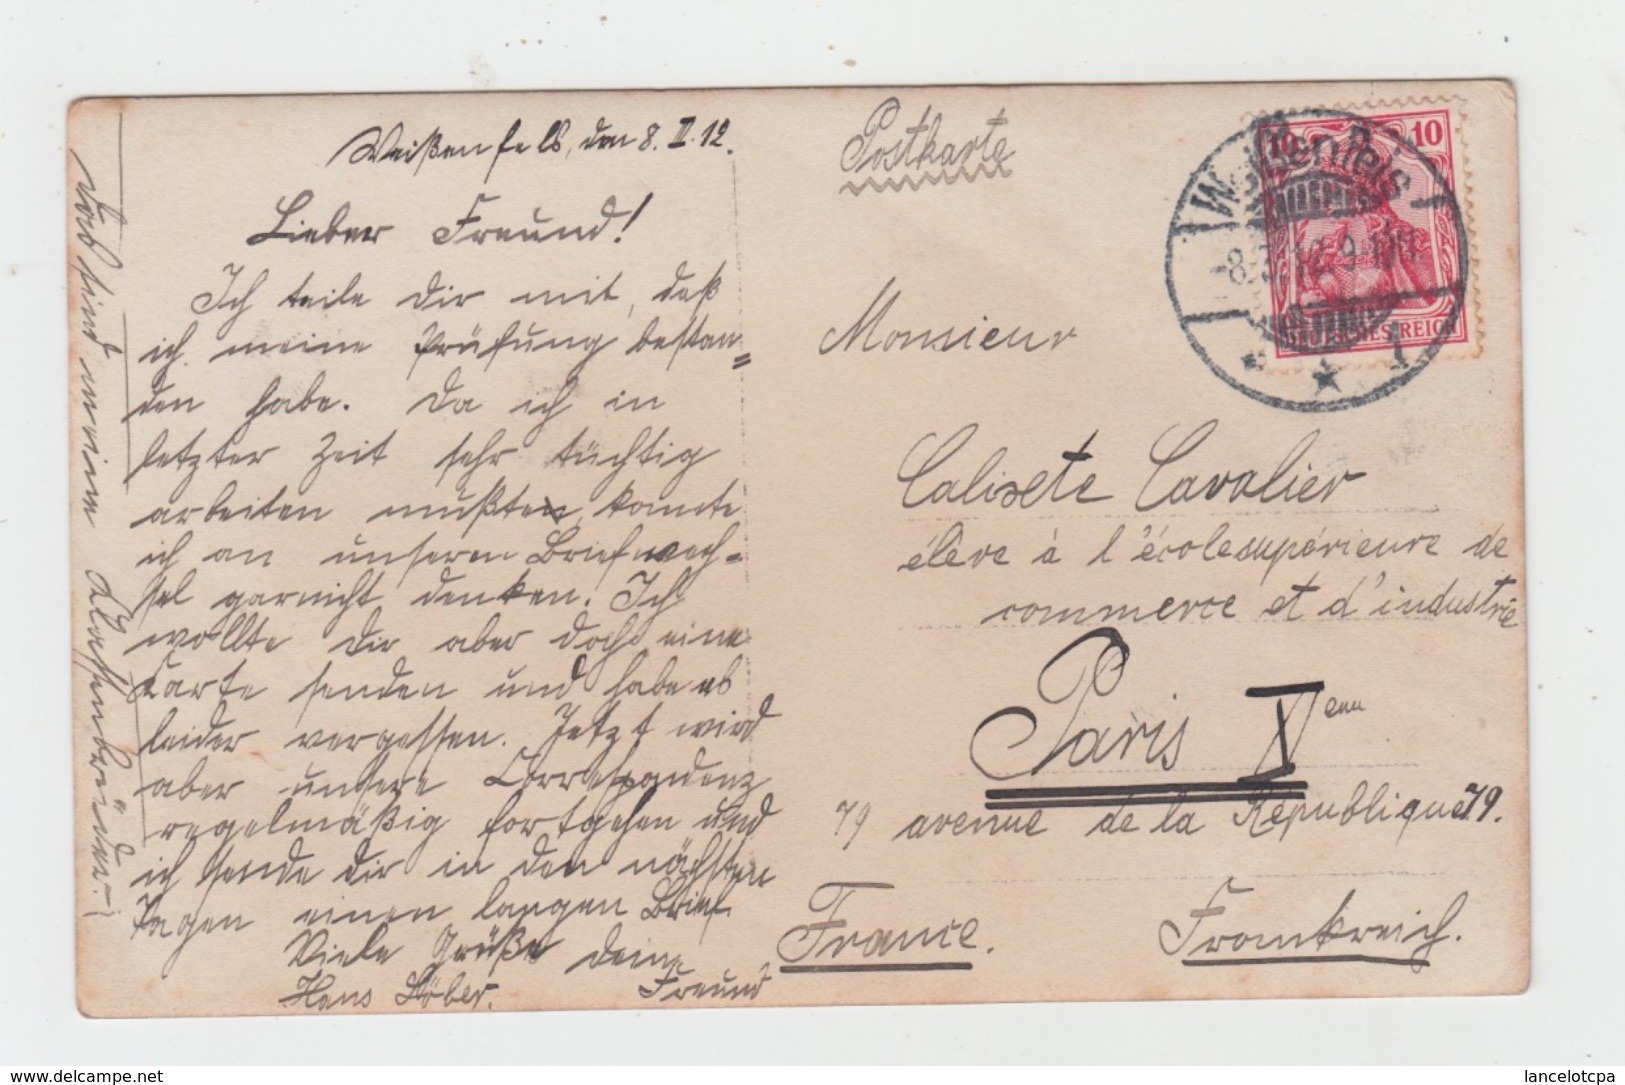 Weißenfels, den 8. II. 12.
Lieber Freund!
Ich teile Dir mit, daß
ich meine Prüfung bestan=
den habe. Da ich in
letzter Zeit sehr tüchtig
arbeiten mußte, konnte
ich an unseren Briefwech=
sel garnicht denken. Ich
wollte Dir aber doch eine
Karte senden und habe es
leider vergessen. Jetzt wird
aber unsere Correspondenz
regelmäßig fortgehen und
ich sende Dir in den nächsten
Tagen einen langen Brief.
Viele Grüße Dein
Hans Stöber. Freund
Das sind meine Klassenbrüder!
Postkarte
Monsieur
Calixte Cavalier
élève à l'école supérieure de
commerce et d'industrie
Paris X enu
79 avenue de la République 79.
France. Frankreich.
10 10
DEUTSCHES REICH
Weißenfels
1
lancelotcpa
https://www.delcampe.net/